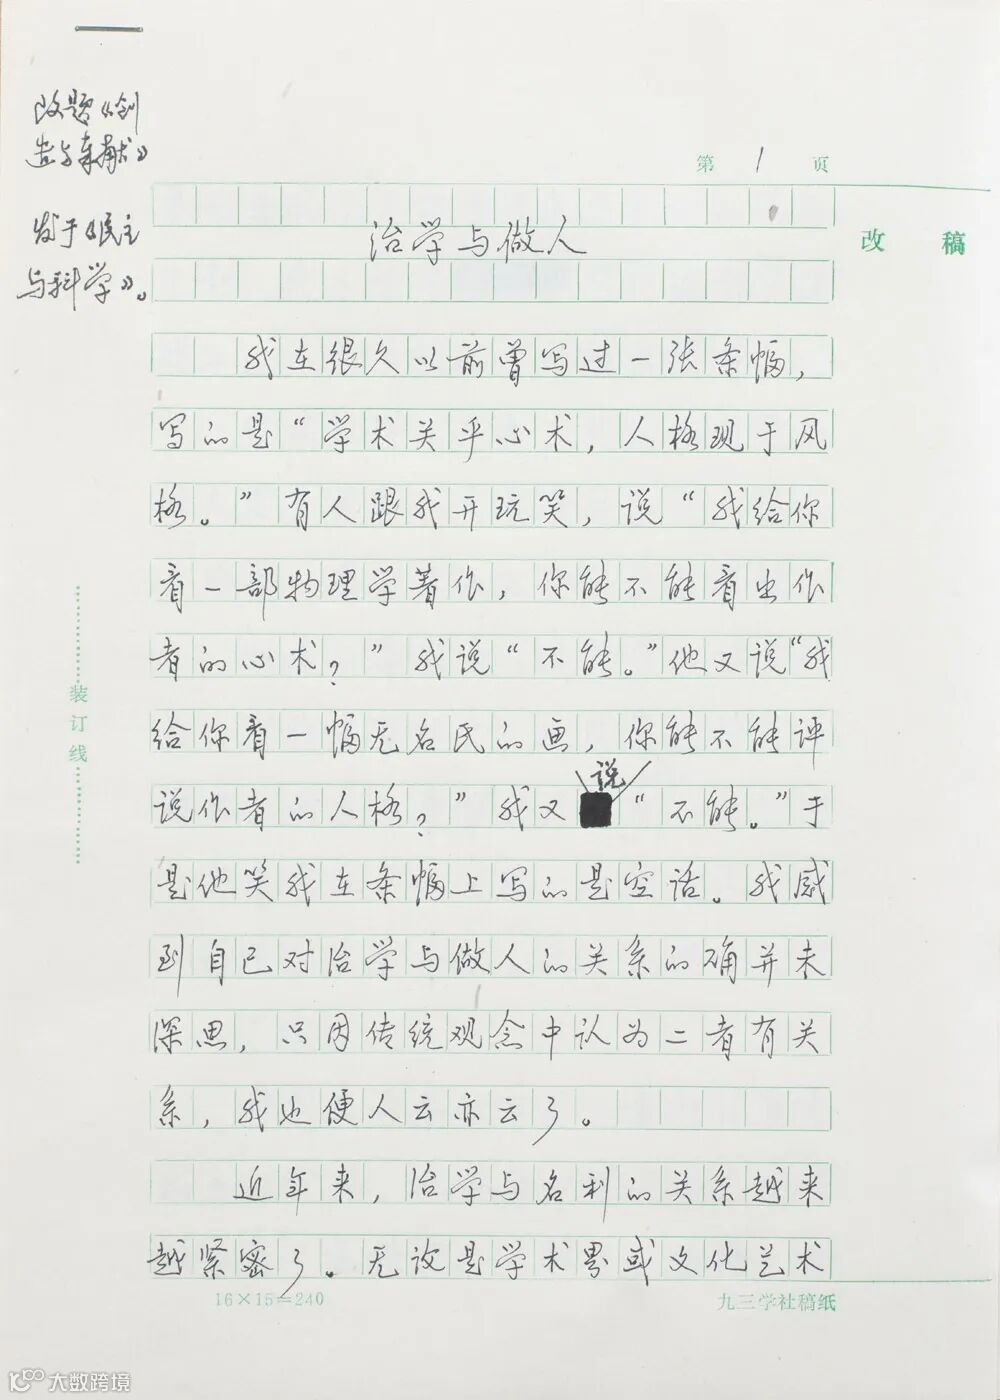 改题《创
造与奉献》
发于《民主
与科学》。
第 1 页
改 稿
治学与做人
我在很久以前曾写过一张条幅，
写的是“学术关乎心术，人格现于风
格。”有人跟我开玩笑，说“我给你
看一部物理学著作，你能不能看出作
者的心术？”我说“不能。”他又说“我
给你看一幅无名氏的画，你能不能评
说作者的人格？”我又说“不能。”于
是他笑我在条幅上写的是空话。我感
到自己对治学与做人的关系的确并未
深思，只因传统观念中认为二者有关
系，我也便人云亦云了。
近年来，治学与名利的关系越来
越紧密了。无论是学术界或文化艺术
装订线
16×15=240
九三学社稿纸
大数跨境